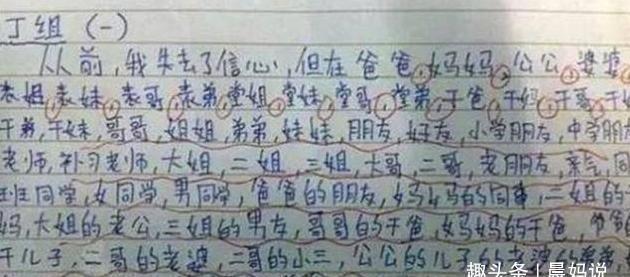 丁组（一）
从前，我失去了信心，但在爸爸，妈妈，公公，婆婆
表姐，表妹，表哥，表弟，堂姐，堂妹，堂哥，堂弟，干爸，干妈，干哥，干
干弟，干妹，哥哥，姐姐，弟弟，妹妹，朋友，好友，小学朋友，中学朋
老师，补习老师，大姐，二姐，三姐，大哥，二哥，老朋友，亲气，同
班同学，女同学，男同学，爸爸的朋友，妈妈的同事，二姐的
妈，大姐的老公，三姐的男友，哥哥的干爸，妈妈的干爸，爷爷的
干儿子，二哥的老婆，二哥的小三，公公的儿子
趣头条｜晨妈说